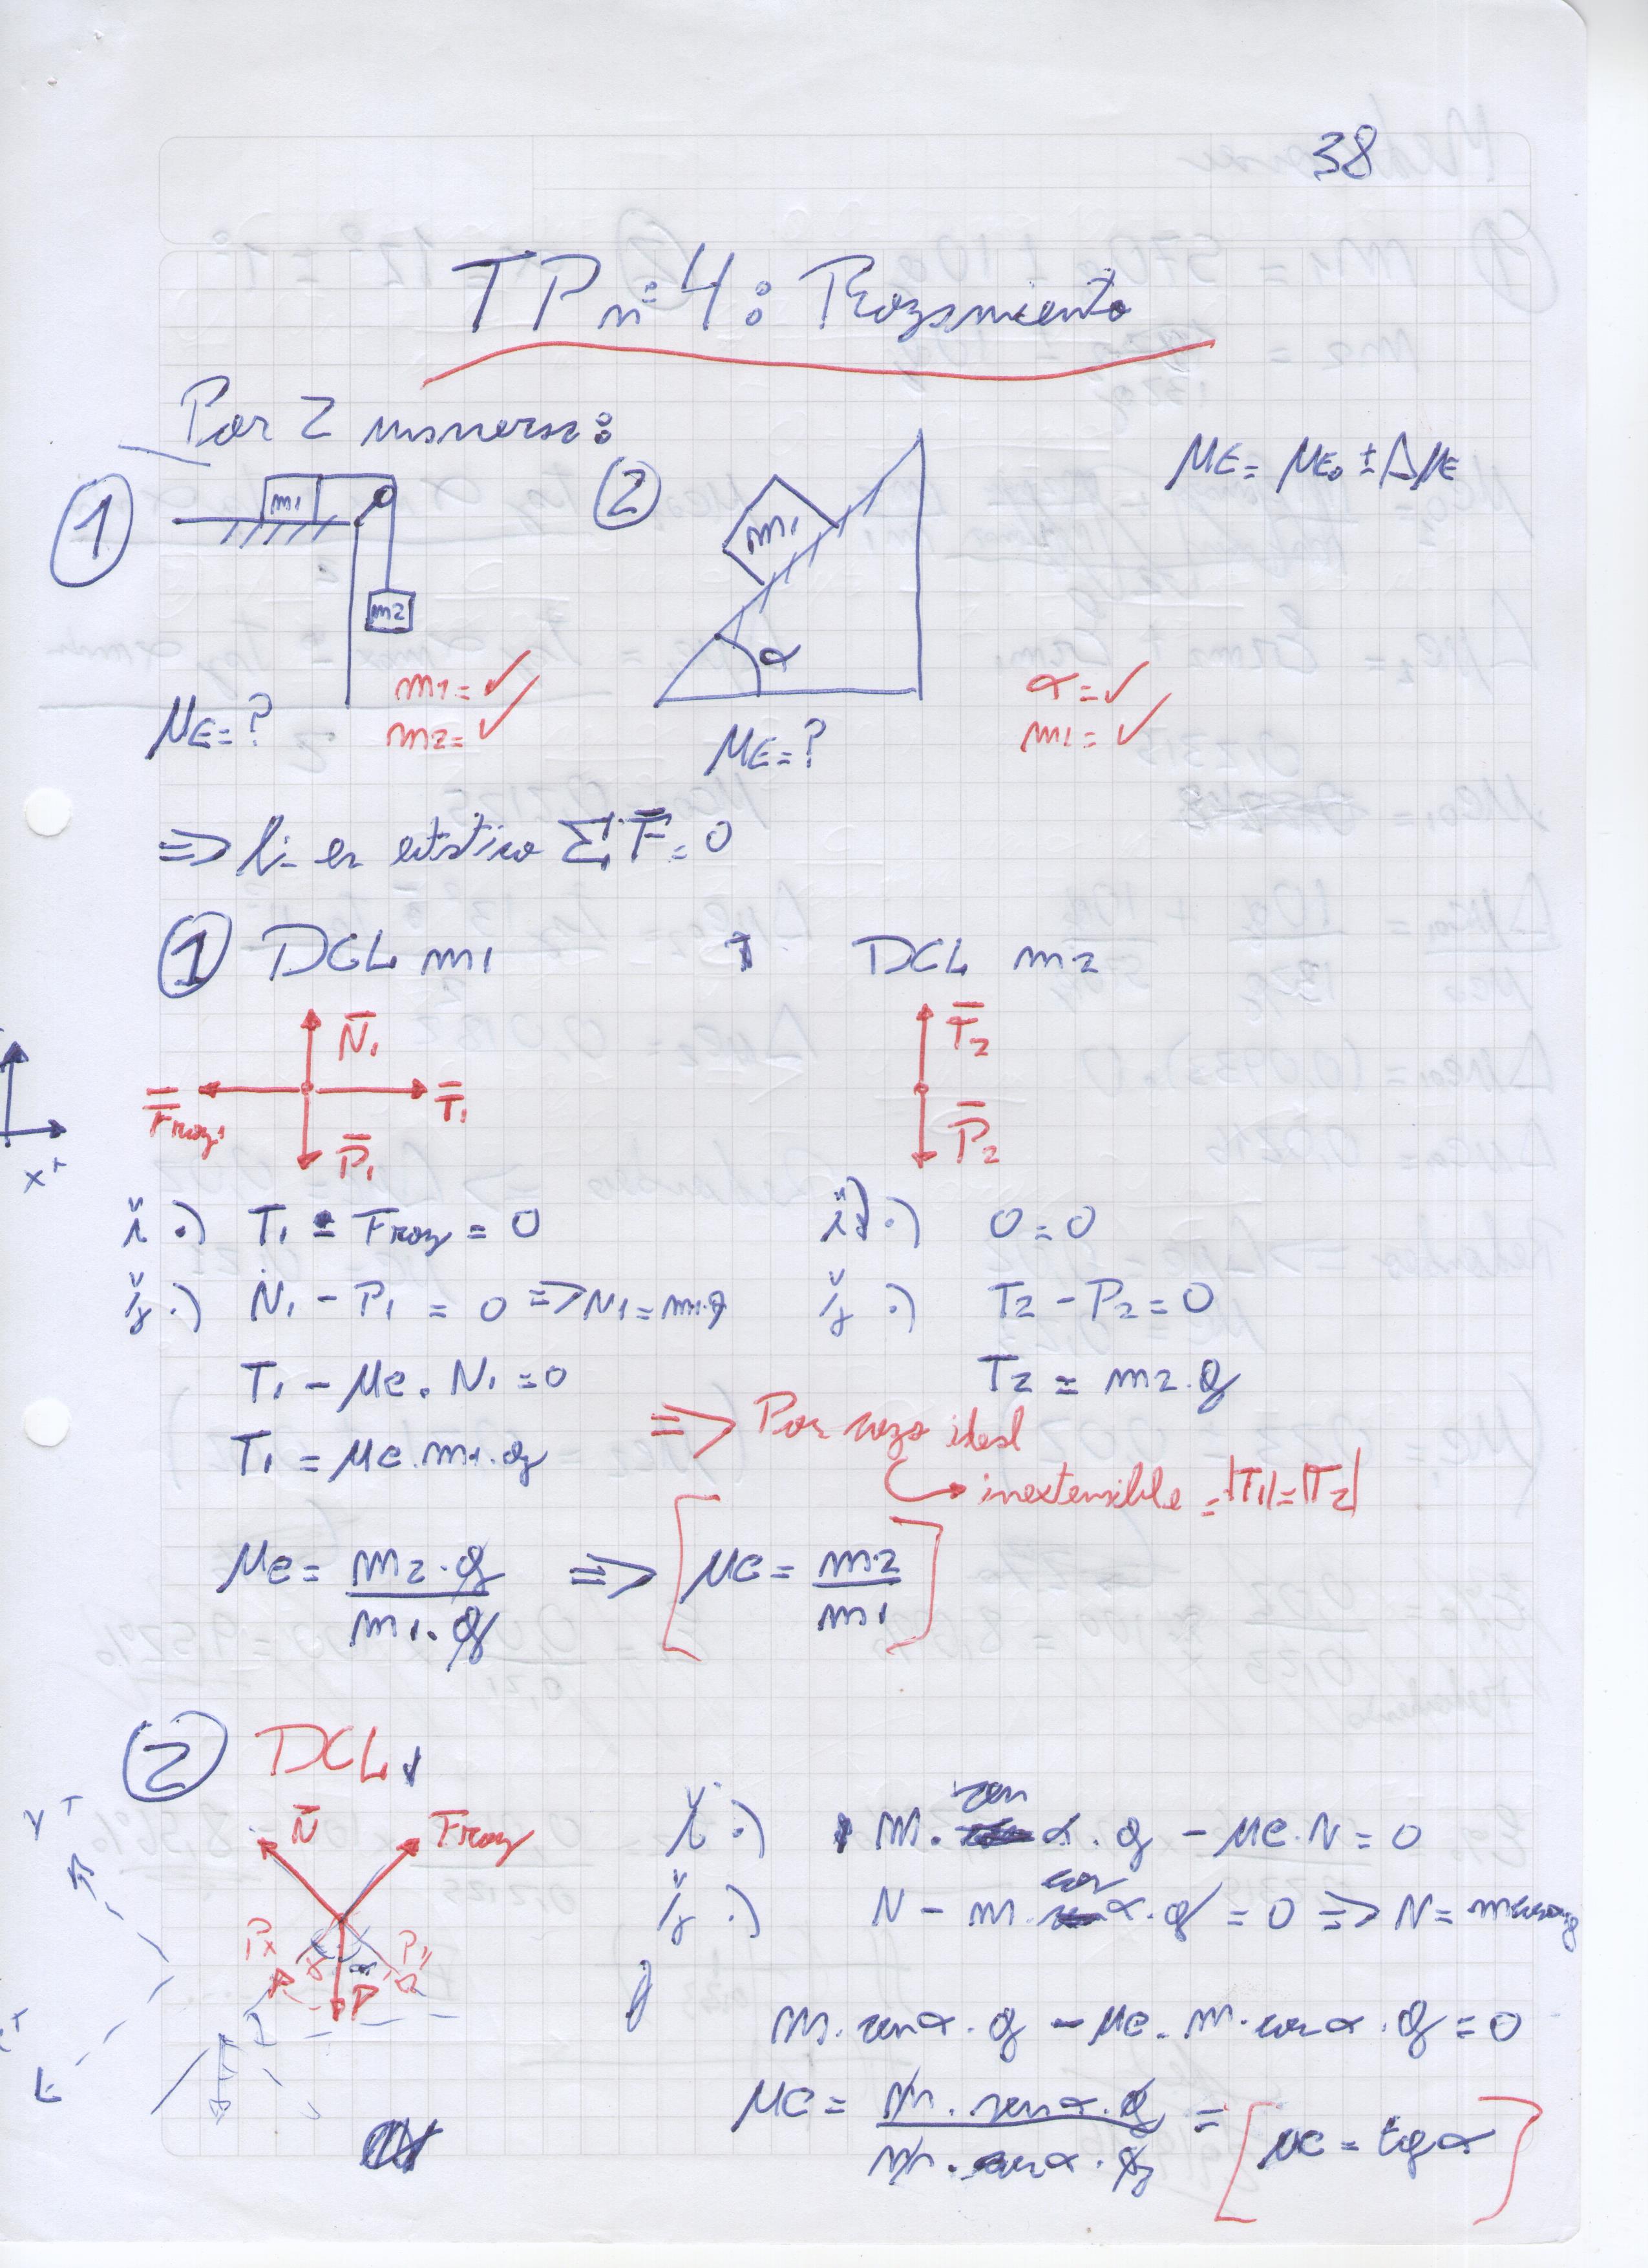 38
TP n° 4: Rozamiento
Por 2 maneras:
① m1 m2
② m1 α
ME = ME₀ ± ΔME
ME = ?
m1 = ✓
m2 = ✓
ME = ?
α = ✓
m1 = ✓
⇒ Si es estático Σ F̄ = 0
① DCL m1
DCL m2
N̄₁
F̄roz₁ T̄₁
P̄₁
T̄₂
P̄₂
x⁺
ǐ .) T₁ - Froz = 0
ǰ .) N₁ - P₁ = 0 ⇒ N₁ = m1.g
T₁ - μe . N₁ = 0
T₁ = μe . m1 . g
ǐ .) 0 = 0
ǰ .) T₂ - P₂ = 0
T₂ = m2 . g
⇒ Por soga ideal
↪ inextensible = |T₁| = |T₂|
μe = m2 . g / m1 . g ⇒ [ μe = m2 / m1 ]
② DCL
N̄ Froz
Px Py
P
y⁺
x⁺
ǐ .) m . sen α . g - μe . N = 0
ǰ .) N - m . cos α . g = 0 ⇒ N = m cos α g
m . sen α . g - μe . m . cos α . g = 0
μe = m . sen α . g / m . cos α . g = [ μe = tg α ]